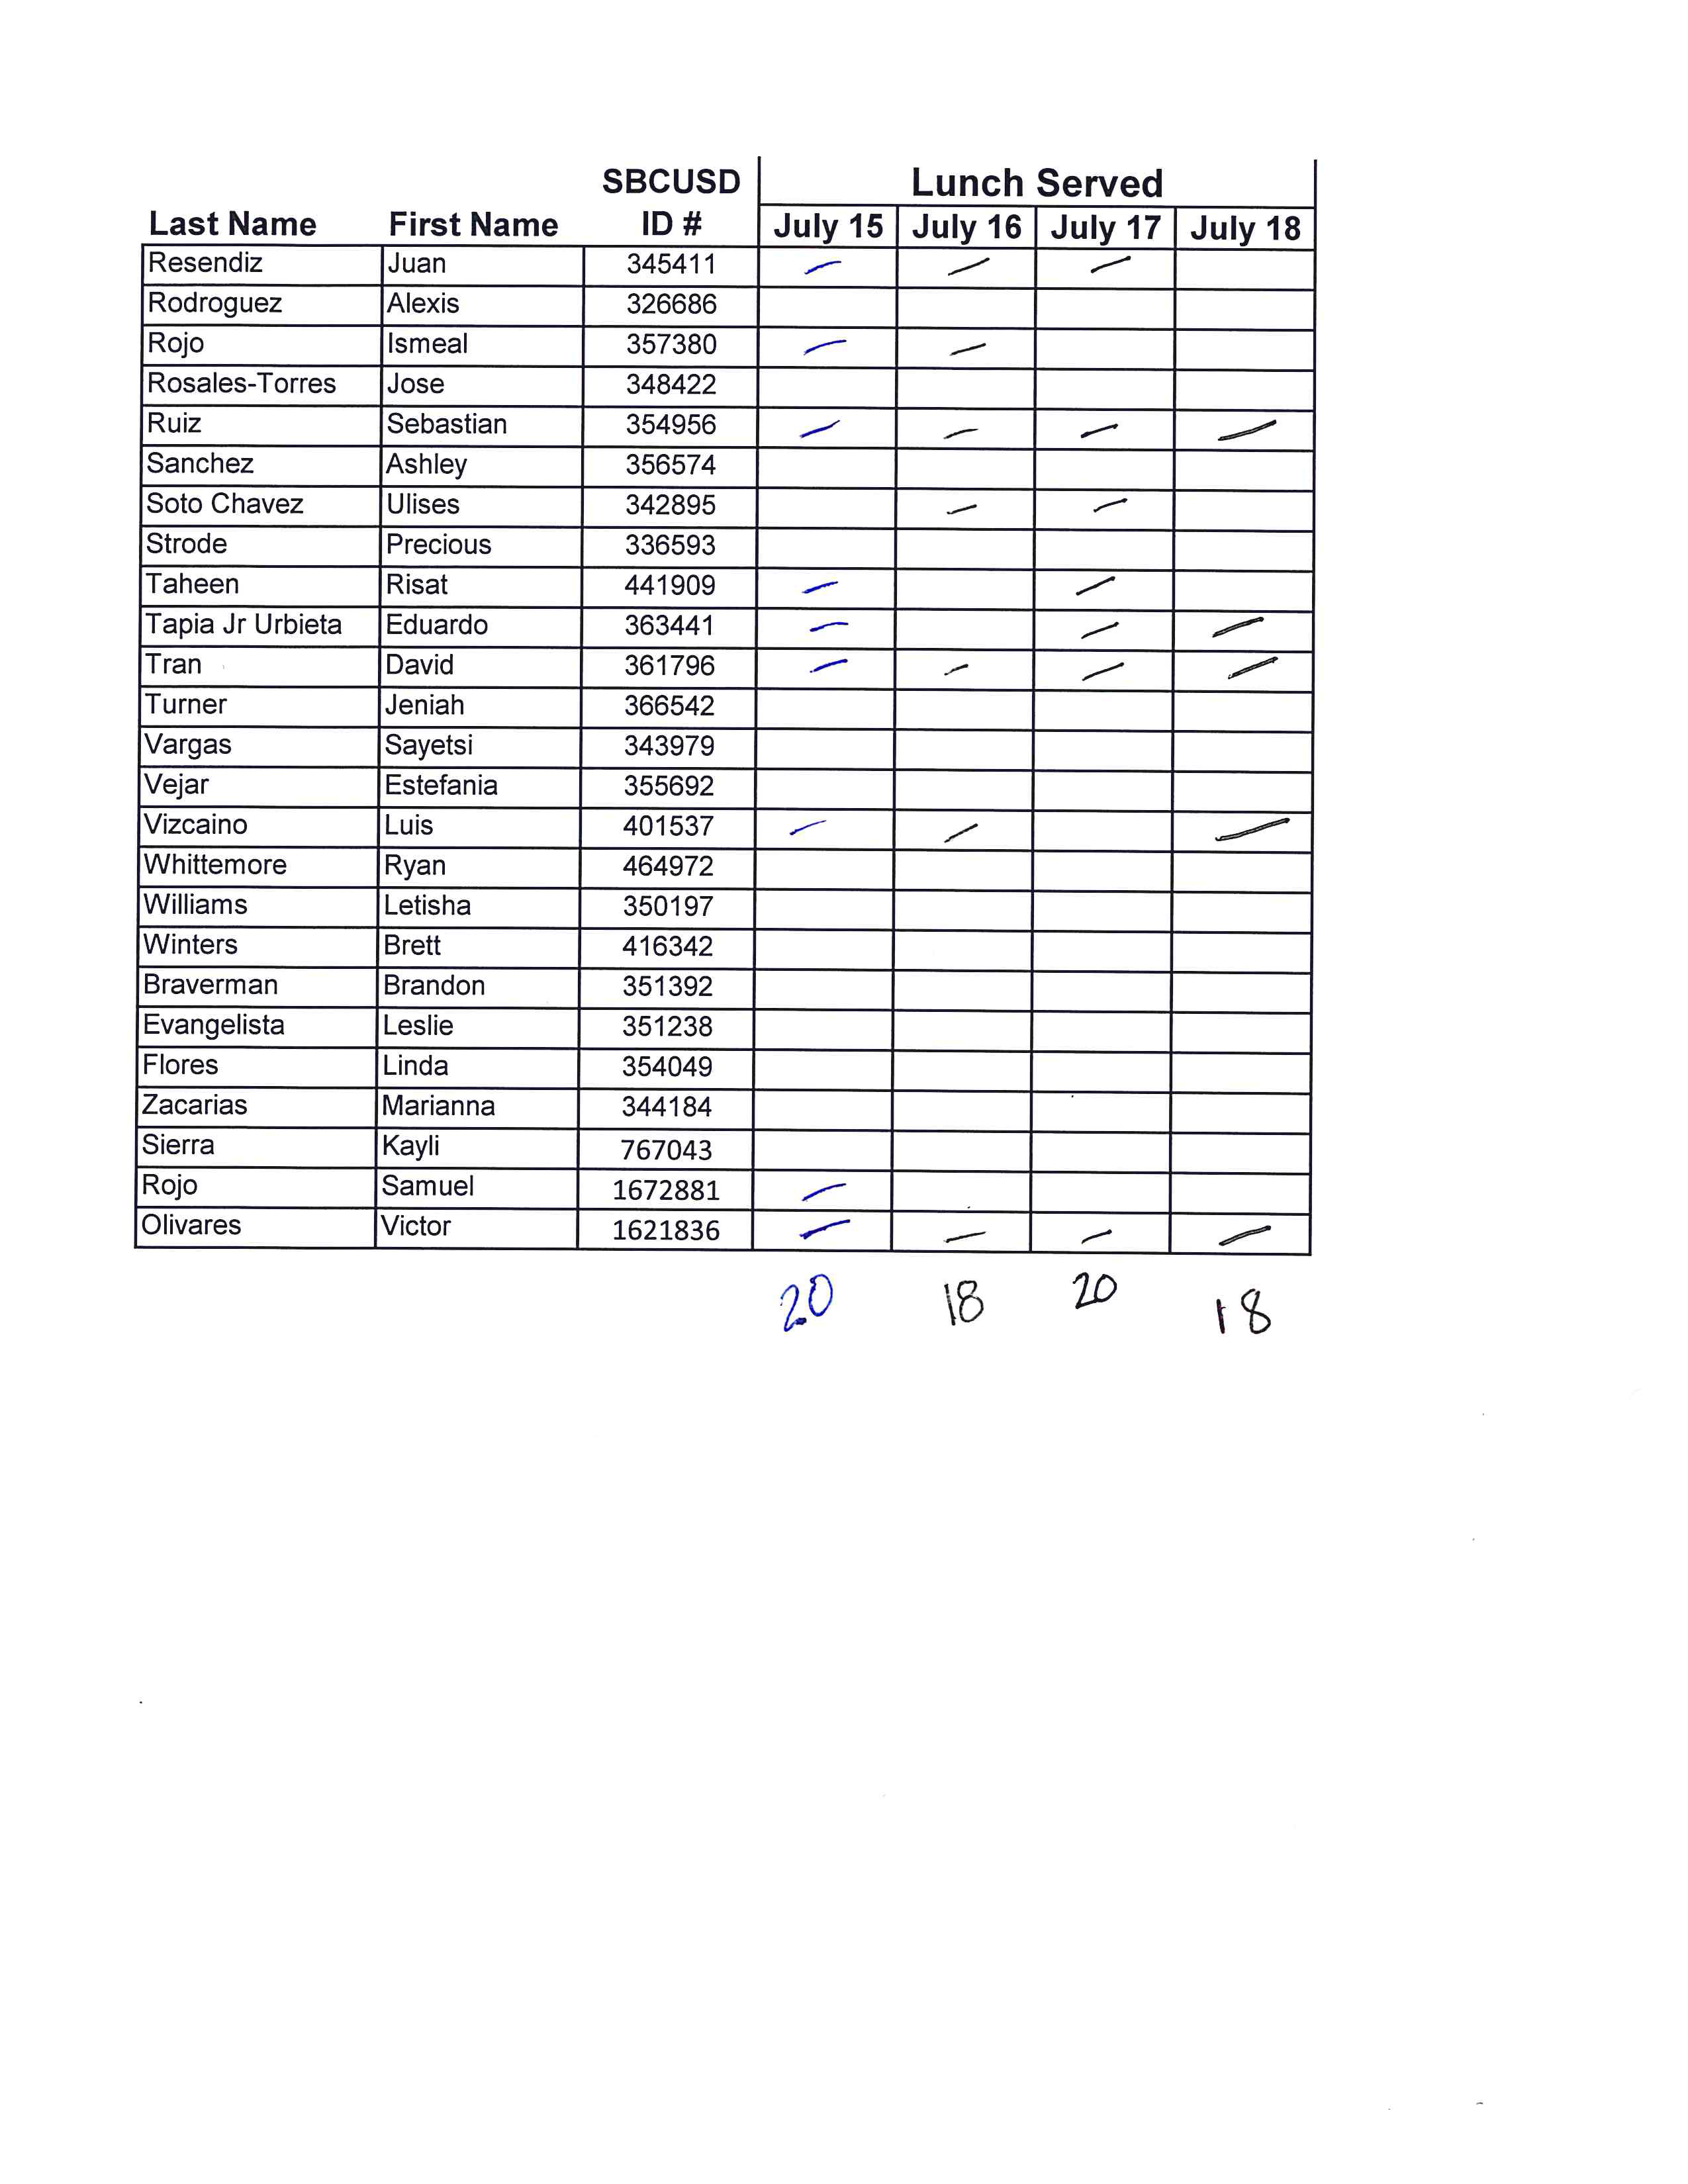 SBCUSD Lunch Served
Last Name First Name ID # July 15 July 16 July 17 July 18
Resendiz Juan 345411 / / /
Rodroguez Alexis 326686
Rojo Ismeal 357380 / /
Rosales-Torres Jose 348422
Ruiz Sebastian 354956 / / / /
Sanchez Ashley 356574
Soto Chavez Ulises 342895 / /
Strode Precious 336593
Taheen Risat 441909 / /
Tapia Jr Urbieta Eduardo 363441 / / /
Tran David 361796 / / / /
Turner Jeniah 366542
Vargas Sayetsi 343979
Vejar Estefania 355692
Vizcaino Luis 401537 / / /
Whittemore Ryan 464972
Williams Letisha 350197
Winters Brett 416342
Braverman Brandon 351392
Evangelista Leslie 351238
Flores Linda 354049
Zacarias Marianna 344184
Sierra Kayli 767043
Rojo Samuel 1672881 /
Olivares Victor 1621836 / / / /
20 18 20 18